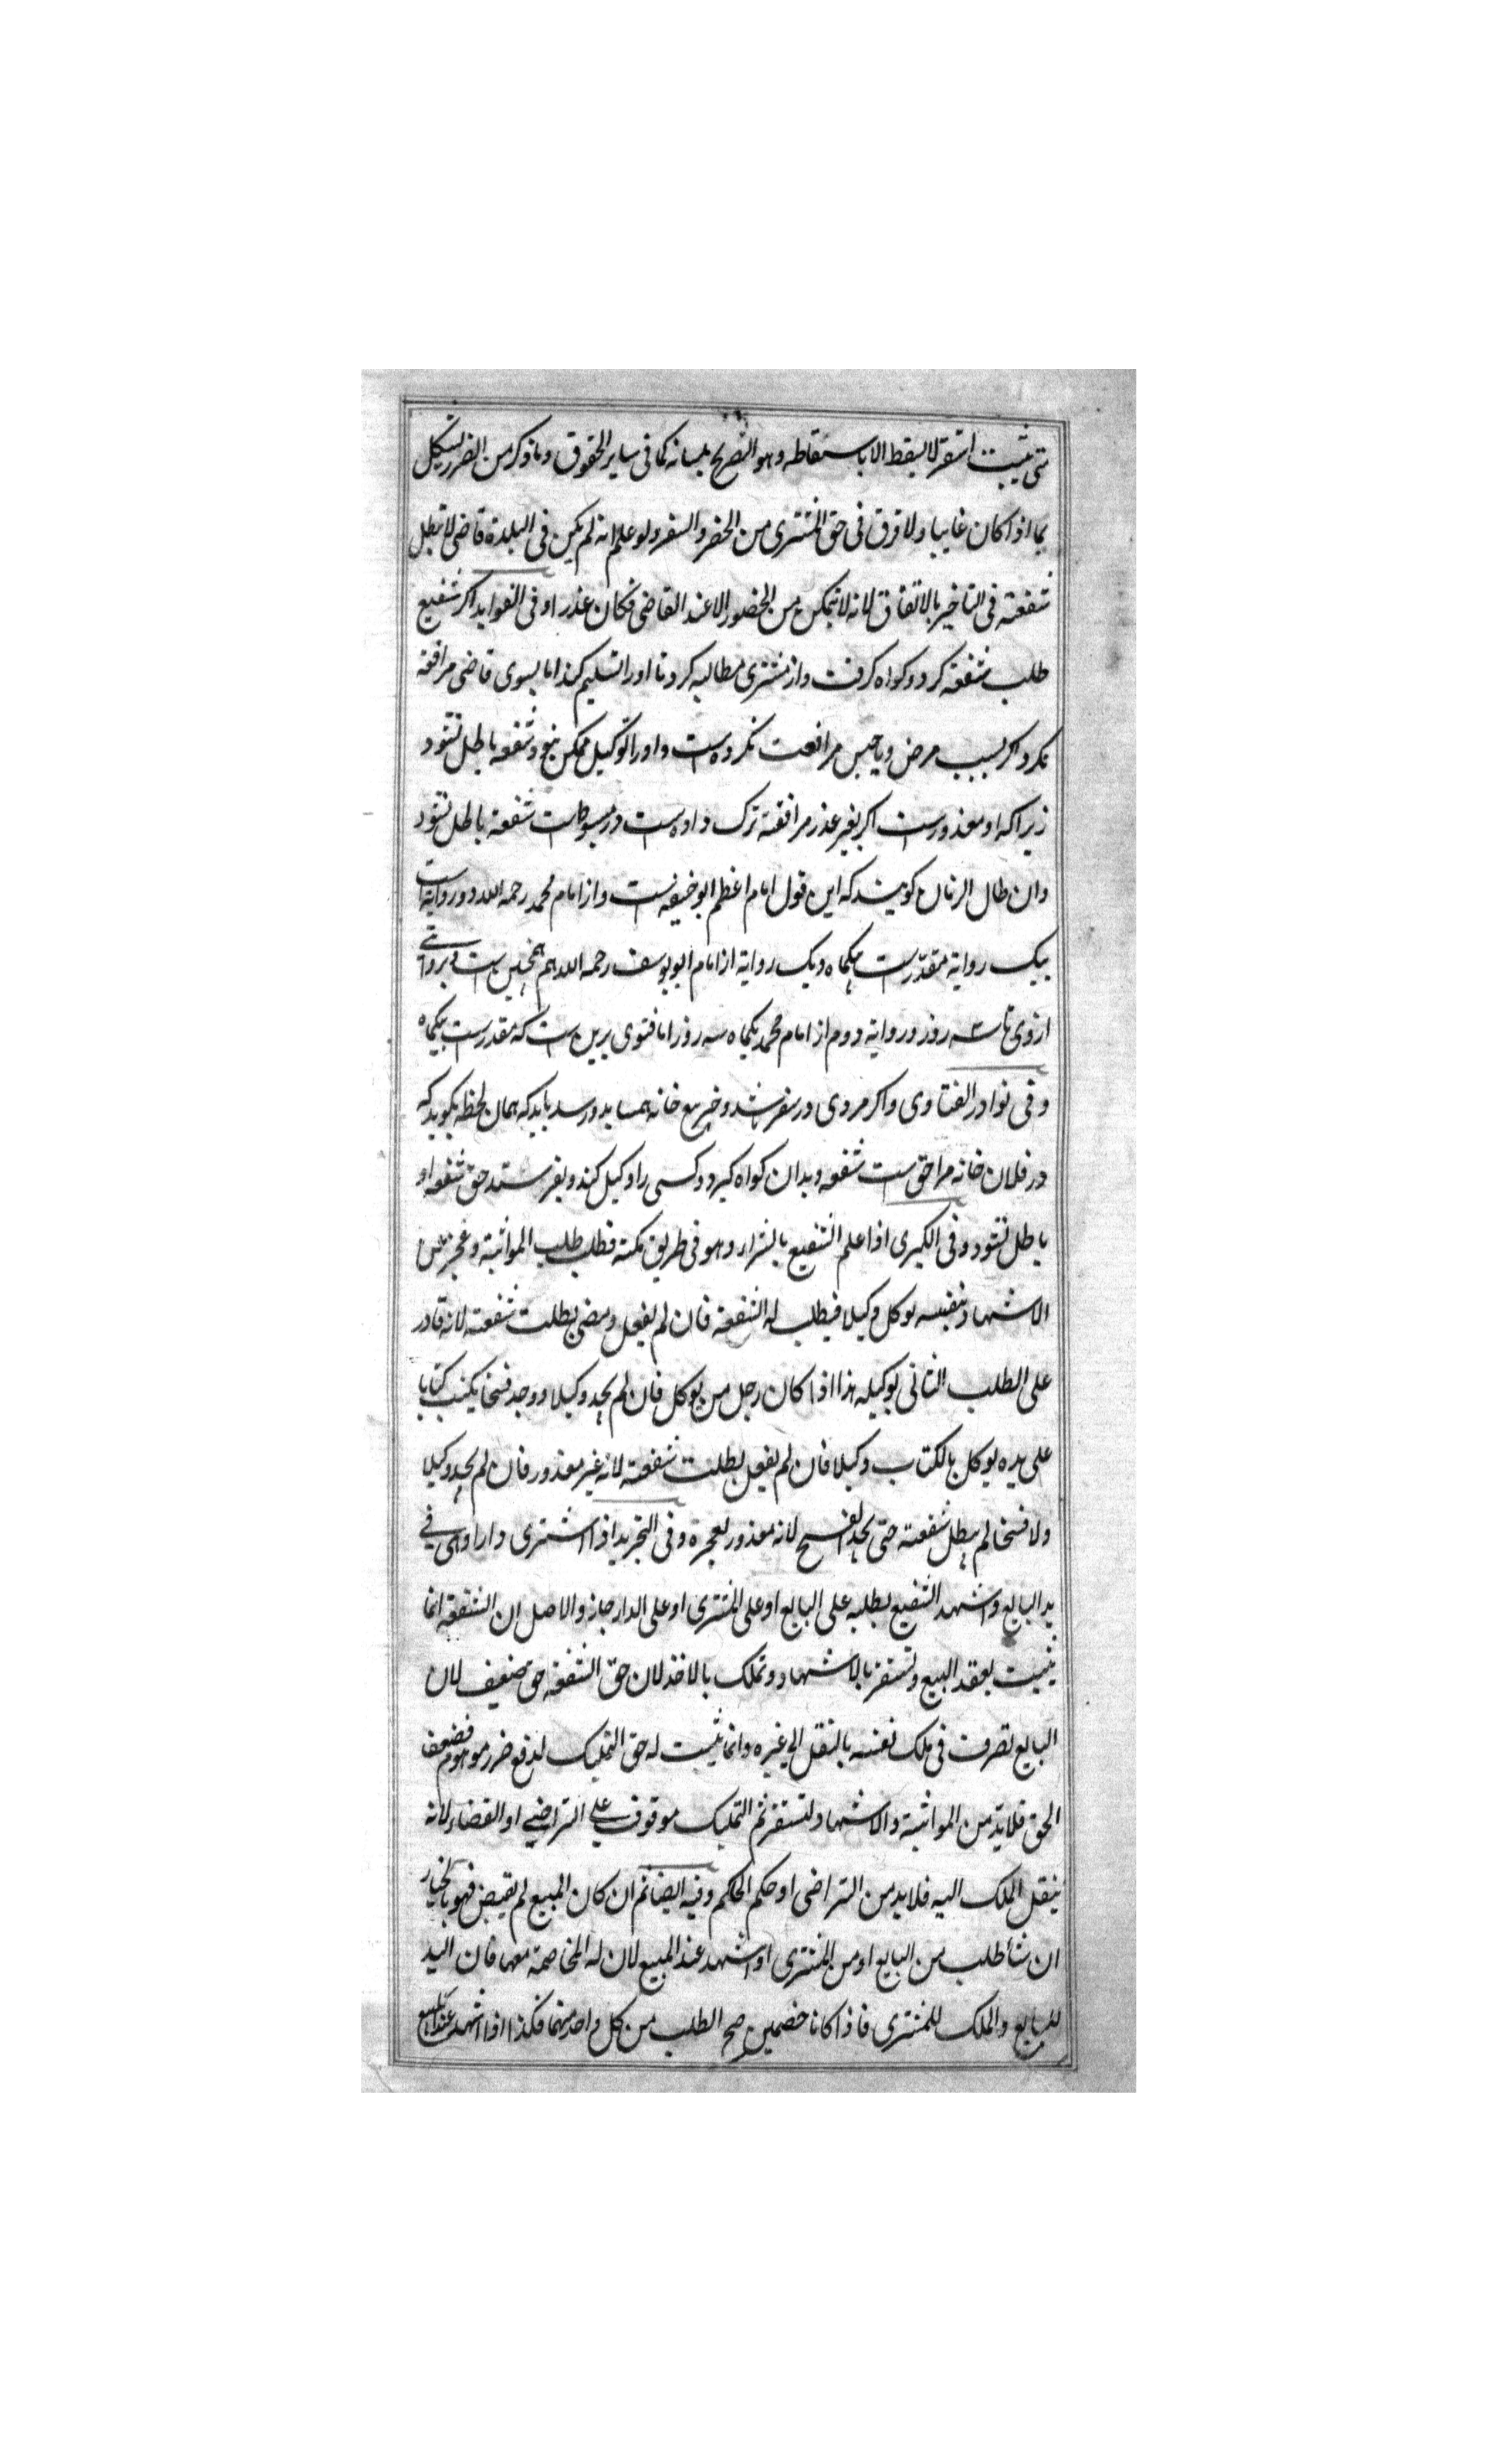 متی یثبت استقر لا یسقط الا باسقاطه وهو التصریح بلسانه کما فی سایر الحقوق وما ذکر من الضرر یشکل
بما اذا کان غایبا ولا فرق فی حق المشتری من الحضر والسفر ولو علم انه لم یکن فی البلدة قاضی لا تبطل
شفعته فی التاخیر بالاتفاق لانه لا یتمکن من الحضور الا عند القاضی فکان عذرا و فی الفواید اکر شفیع
طلب شفعة کرد و کواه کرفت و از مشتری مطالبه کرد تا اورا تسلیم کند اما بسوی قاضی مرافعه
نکرد اکر بسبب مرض و یا حبس مرافعت نکرده است و اورا توکیل ممکن نبود شفعه باطل نشود
زیراکه او معذورست اکر بغیر عذر مرافعة ترک داده است در مبسوط است شفعة باطل نشود
وان طال الزمان کویند که این قول امام اعظم ابوحنیفه است و از امام محمد رحمه الله دو روایة است
بیک روایة مقدرست بیکماه و یک روایة از امام ابویوسف رحمه الله هم همچنین است و بروایتی
ازوی تا سه روز و روایة دوم از امام محمد یکماه سه روز اما فتوی برین است که مقدرست بیکماه
و فی نوادر الفتاوی و اکر مردی در سفر باشد و خبر بیع خانه همسایه بدو رسد باید که همان لحظه بکوید که
در فلان خانه مرا حق است شفعه و بدان کواه کیرد و کسی را وکیل کند و بفرستد حق شفعه او
باطل نشود و فی الکبری اذا علم الشفیع بالشراء وهو فی طریق مکة فطلب طلب المواثبة وعجز عن
الاشهاد بنفسه یوکل وکیلا فیطلب له الشفعة فان لم یفعل ومضی بطلت شفعته لانه قادر
علی الطلب الثانی بوکیله هذا اذا کان رجل من یوکل فان لم یجد وکیلا و وجد فیجا یکتب کتابا
علی یده یوکل بالکتاب وکیلا فان لم یفعل بطلت شفعته لانه غیر معذور فان لم یجد وکیلا
ولا فیجا لم یبطل شفعته حتی یجد الفیج لانه معذور لعجزه و فی التجرید اذا اشتری دارا وهی فی
ید البایع واشهد الشفیع بطلبه علی البایع او علی المشتری او علی الدار جاز والاصل ان الشفعة انما
یثبت بعقد البیع وتستقر بالاشهاد وتملک بالاخذ لان حق الشفعة حق ضعیف لان
البایع تصرف فی ملک نفسه بالنقل الی غیره وانما یثبت له حق التملیک لدفع ضرر موهوم فضعف
الحق فلا بد من المواثبة والاشهاد لتستقر ثم التملیک موقوف علی التراضی او القضاء لانه
ینقل الملک الیه فلا بد من التراضی او حکم الحاکم وفیه ایضا ثم ان کان المبیع لم یقبض فهو بالخیار
ان شأ طلب من البایع او من المشتری او اشهد عند المبیع لان له المخاصمة معهما فان الید
للبایع والملک للمشتری فاذا کانا خصمین صح الطلب من کل واحد منهما فکذا اذا اشهد عند المبیع